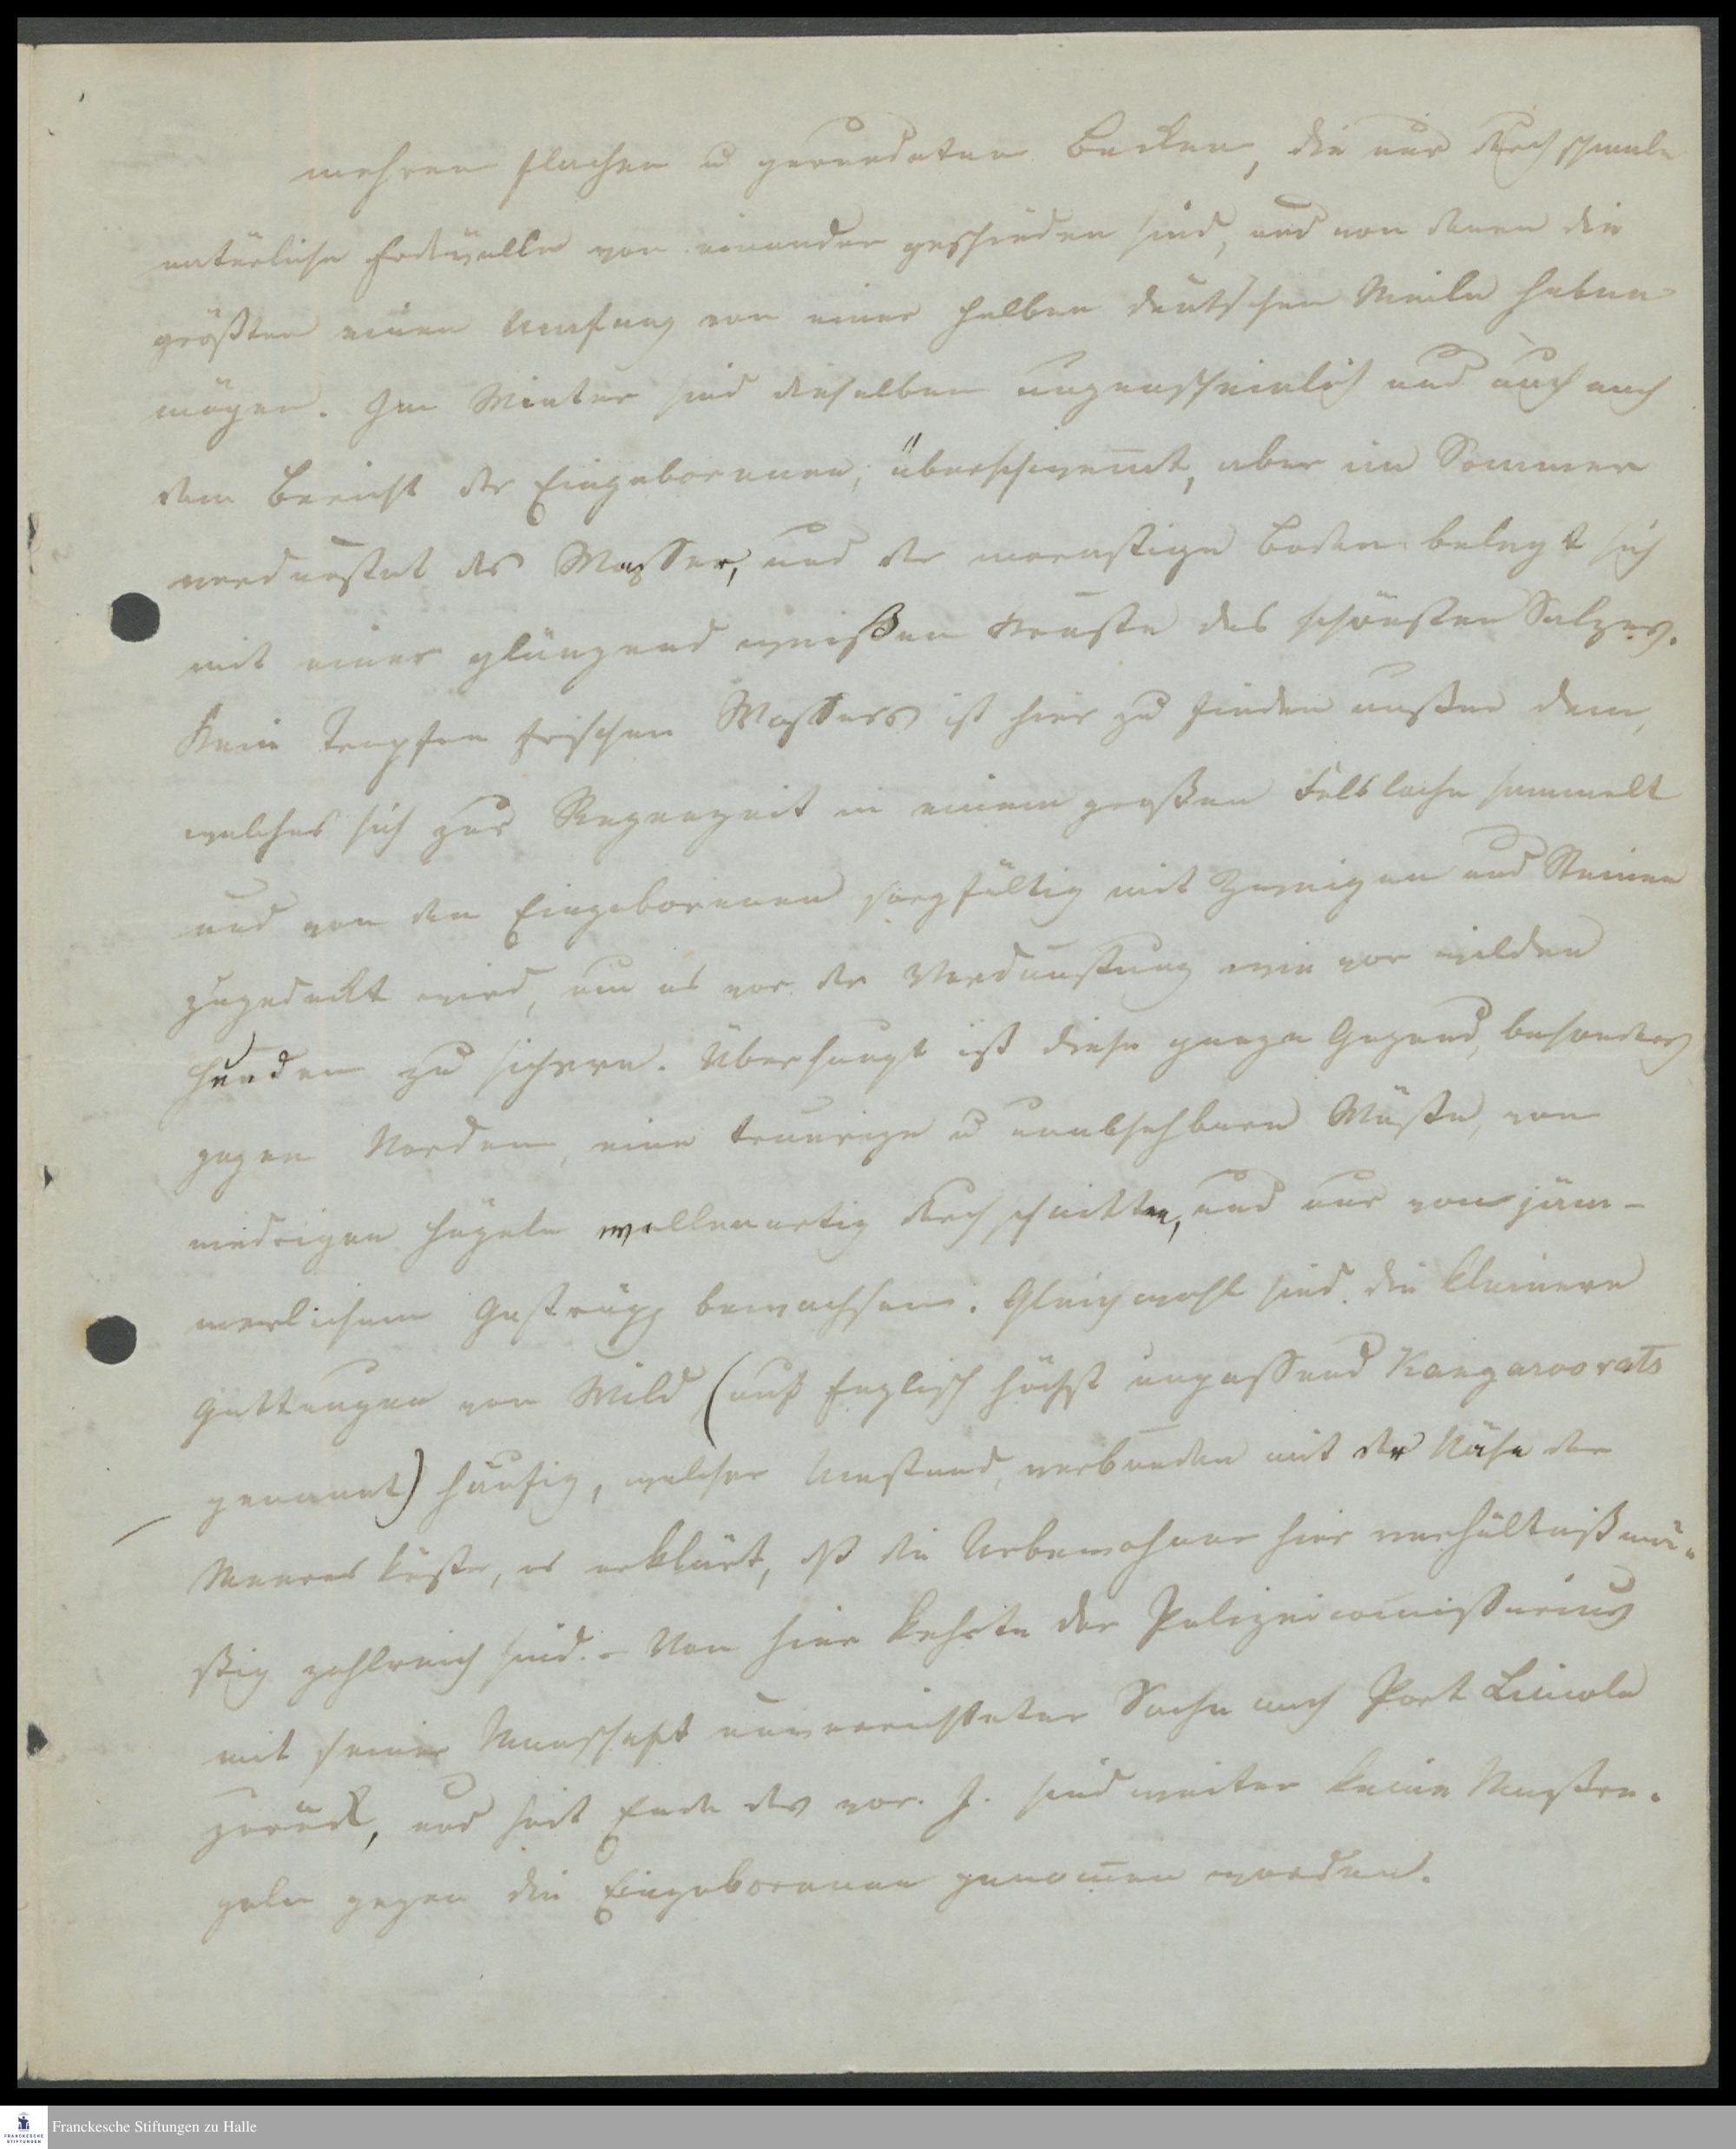 mehren flachen u gerundeten Becken, die nur durch schmale
natürliche Erdwälle von einander geschieden sind, und von denen die
größten einen Umfang von einer halben deutschen Meile haben
mögen. Im Winter sind dieselben augenscheinlich und auch nach
dem Bericht der Eingeborenen, überschwem̄t, aber im Sommer
verdunstet das Wasser, und der morastige Boden belegt sich
mit einer glänzend weißen Kruste des schönsten Salzes.
Kein Tropfen frischen Wassers ist hier zu finden außer dem,
welches sich zur Regenzeit in einem großen Felsloche sammelt
und von den Eingeborenen sorgfältig mit Zweigen und Steinen
zugedeckt wird, um es vor der Verdunstung wie vor wilden
Hunden zu sichern. Überhaupt ist diese ganze Gegend, besonders
gegen Norden, eine traurige u unabsehbare Wüste, von
niedrigen Hügeln wellenartig durchschnitten, und nur von jäm-
merlichem Gestrüpp bewachsen. Gleichwohl sind die kleinern
Gattungen von Wild (auf Englisch höchst unpassend Kangaroorats
genannt) häufig, welcher Umstand, verbunden mit der Nähe der
Meeresküste, es erklärt, dß die Urbewohner hier verhältnißmä-
ßig zahlreich sind. – Von hier kehrte der Polizeicom̄issarius
mit seiner Manschaft unverrichteter Sache nach Port Lincoln
zurück, und seit Ende des vor. J. sind weiter keine Maßre-
geln gegen die Eingeborenen genom̄en worden.
Franckesche Stiftungen zu Halle
FRANCKESCHE
STIFTUNGEN